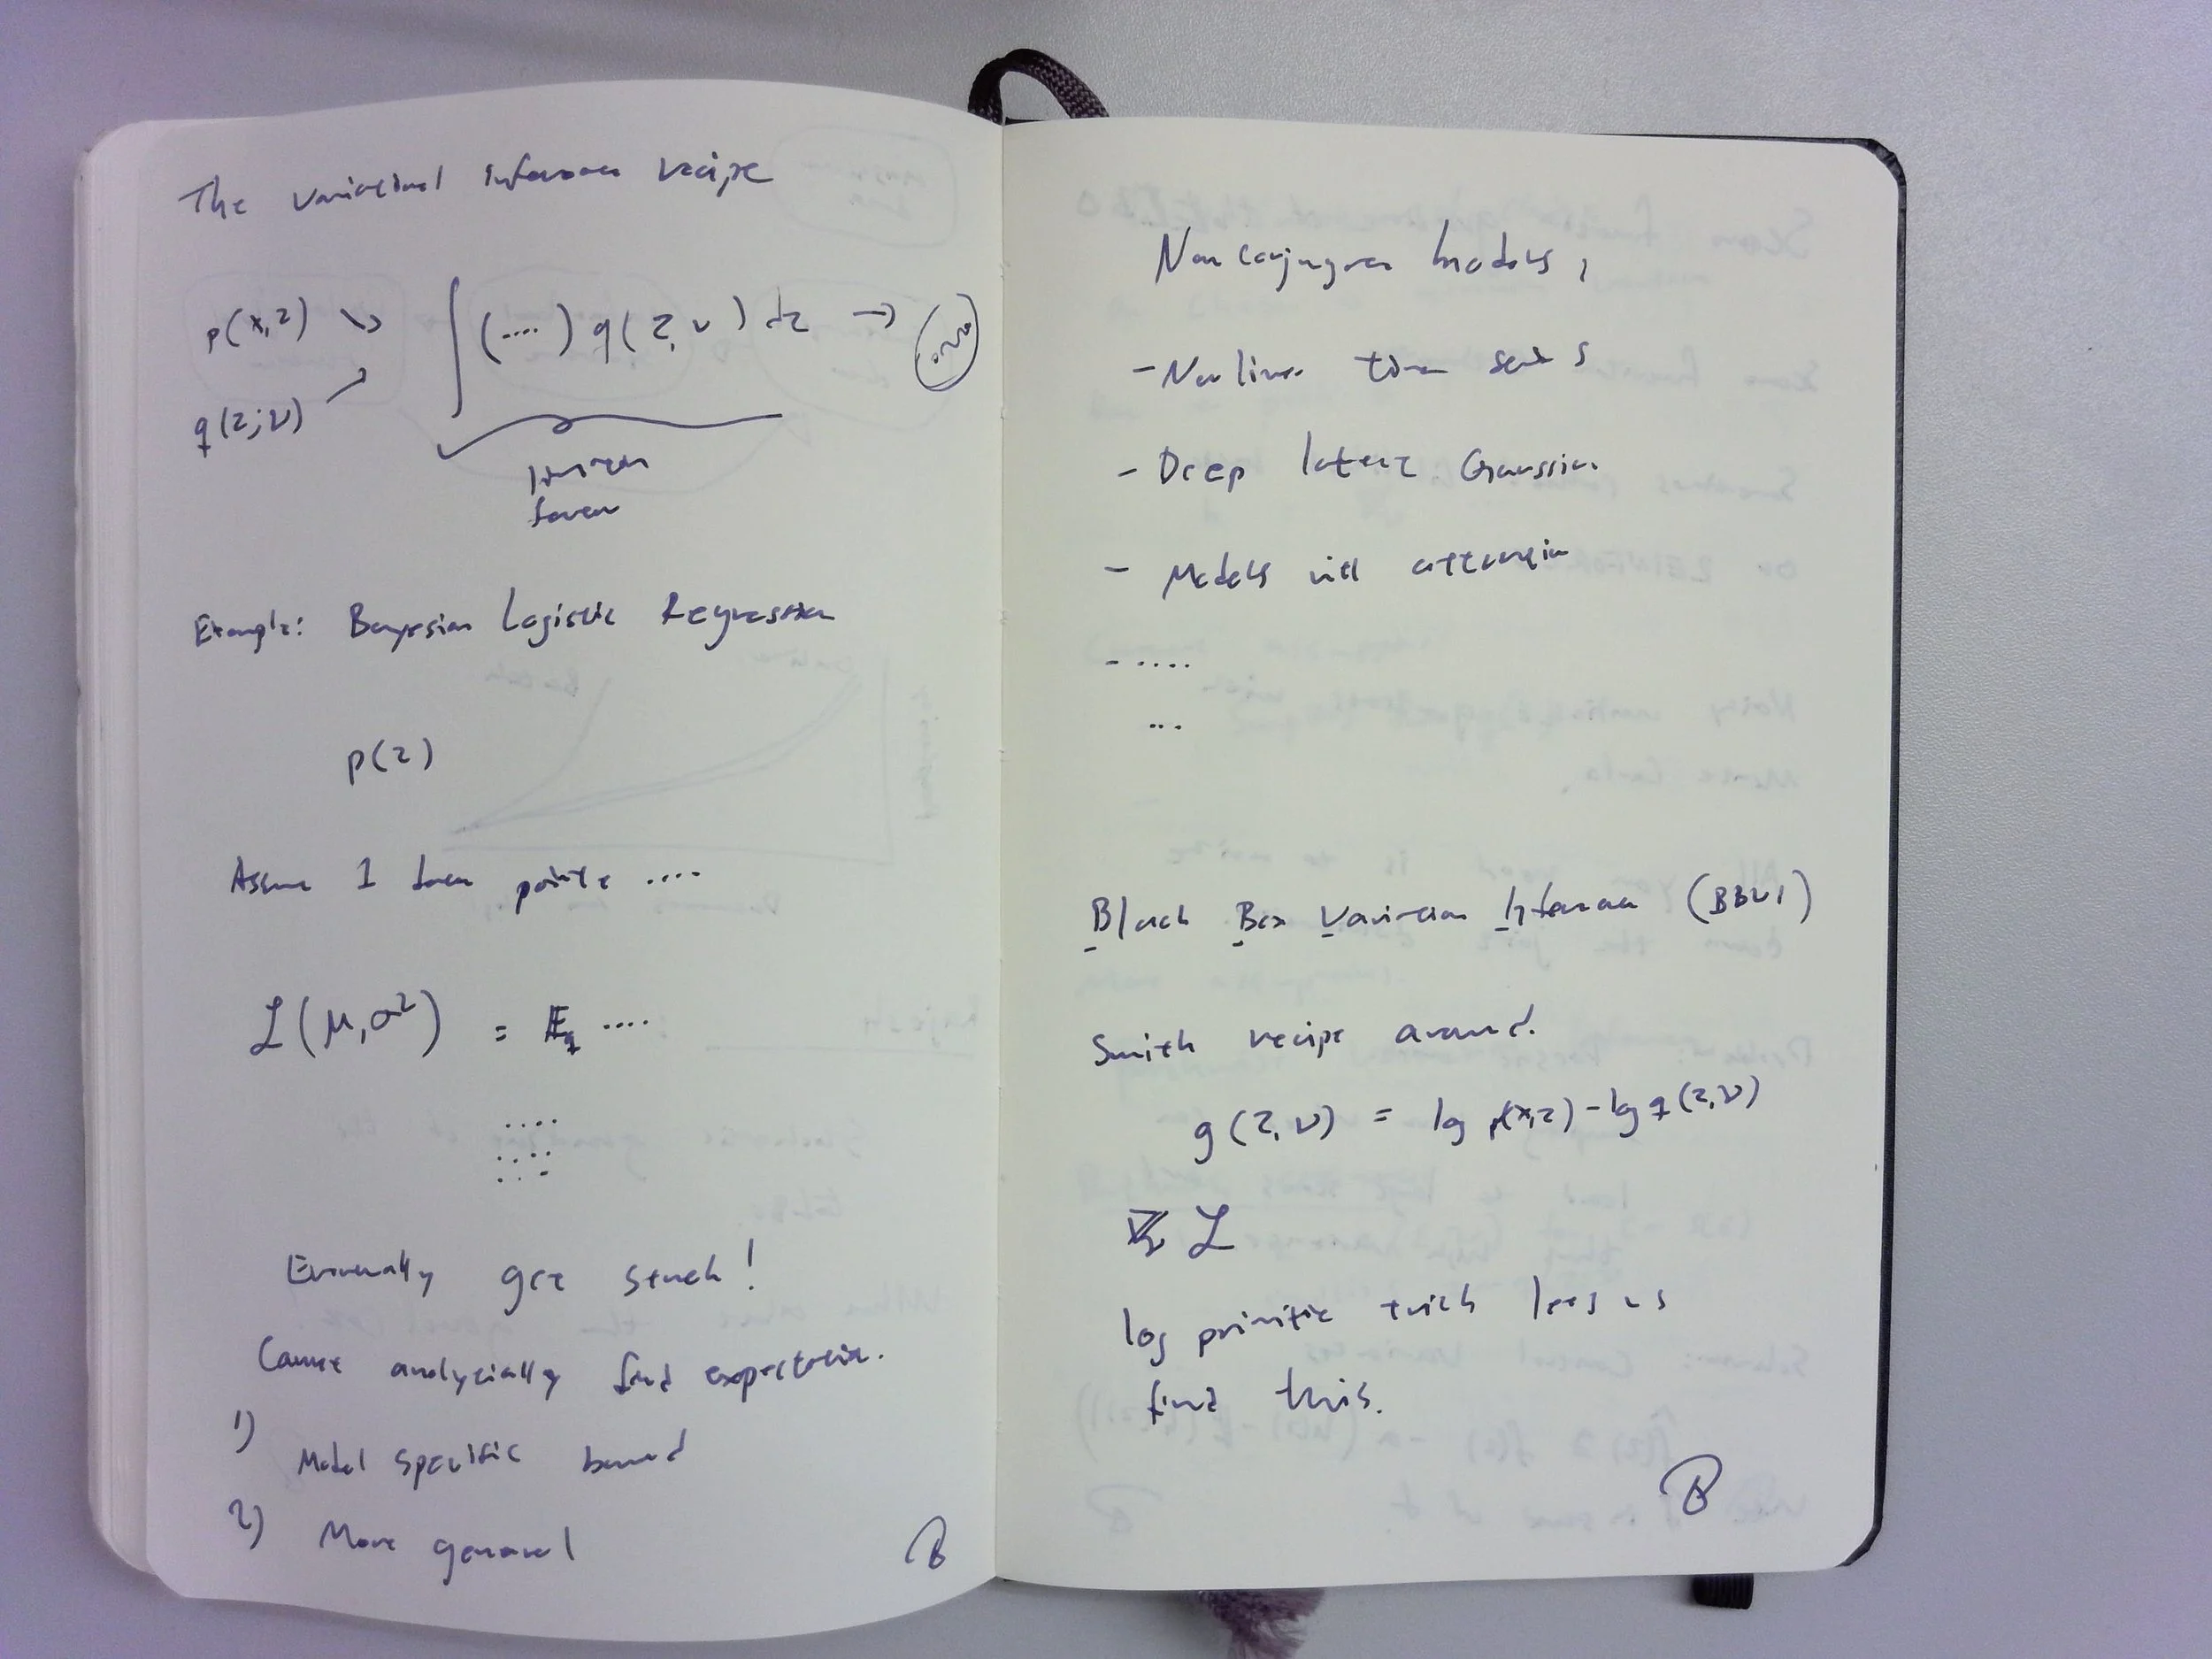 The variational inference recipe
p(x,z) ↘ ∫(....) q(z,ν) dz →
q(z;ν) ↗
Example: Bayesian Logistic Regression
p(z)
Assume 1 data point ....
ℒ(μ,σ²) = 𝔼q ....
....
....
....
Eventually get stuck!
Cannot analytically find expectation.
1)
Model specific bound
2) More general
Non conjugate models,
- Non linear time series
- Deep latent Gaussian
- Models with attention
- ....
...
Black Box Variational Inference (BBVI)
Switch recipe around.
g(z,ν) = log p(x,z) - log q(z,ν)
∇ ℒ
log trick lets us
find this.